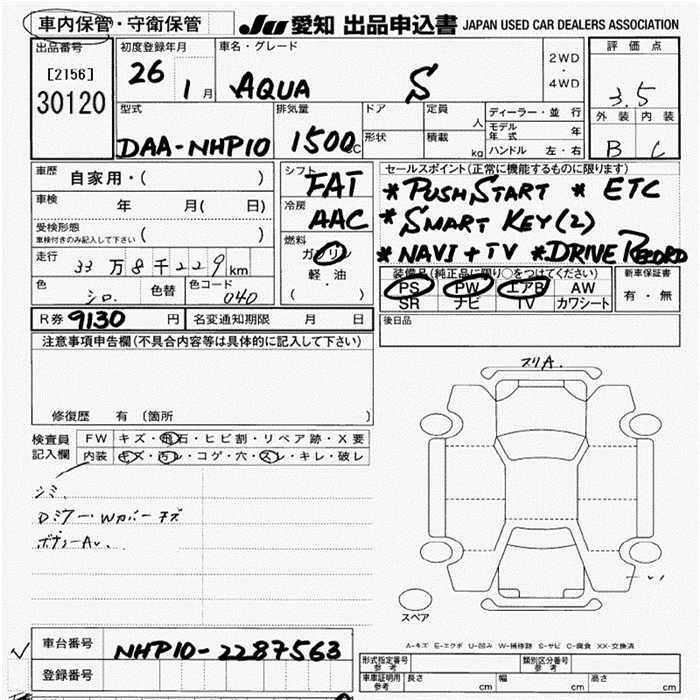 車内保管・守衛保管 JU 愛知 出品申込書 JAPAN USED CAR DEALERS ASSOCIATION
出品番号 初度登録年月 車名・グレード 2WD・4WD 評価点
[2156] 26 1月 AQUA S 3.5
30120 型式 排気量 ドア 定員 人 ディーラー・並行 外装 内装
DAA-NHP10 1500cc 形状 積載 kg モデル年式 年 B C
ハンドル 左・右
車歴 自家用・( ) シフト FAT セールスポイント(正常に機能するものに限ります)
車検 年 月( 日) 冷房 AAC *PUSH START * ETC
受検形態 車検付きのみ記入して下さい ( ) 燃料 *SMART KEY(2)
走行 33万8千229km ガソリン *NAVI+TV *DRIVE RECORD
色 シロ. 色替 色コード 040 軽・油 ( ) 装備品(純正品に限り○をつけてください) 新車保証書
PS PW エアB AW 有・無
SR ナビ TV カワシート
R券 9130 円 名変通知期限 月 日 後日品
注意事項申告欄(不具合内容等は具体的に記入して下さい)
スリA.
修復歴 有 〔箇所 〕
検査員記入欄 FW キズ・飛石・ヒビ割・リペア跡・X要
内装 キズ・汚レ・コゲ・穴・スレ・キレ・破レ
シミ.
Dミラー・Wカバーキズ
スペア
A-キズ E-エクボ U-凹み W-補修跡 S-サビ C-腐食 XX-交換済
車台番号 NHP10-2287563
登録番号
型式指定番号 参考 類別区分番号 参考
車庫証明用 参考 長さ cm 幅 cm 高さ cm